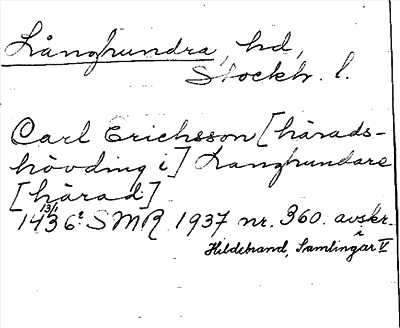 Långhundra, hd,
Stockh. l.
Carl Erichsson [härads-
hövding i] Langhundare
[härad]
13/1
1436. SMR 1937 nr. 360. avskr.
i
Hildebrand, Samlingar V